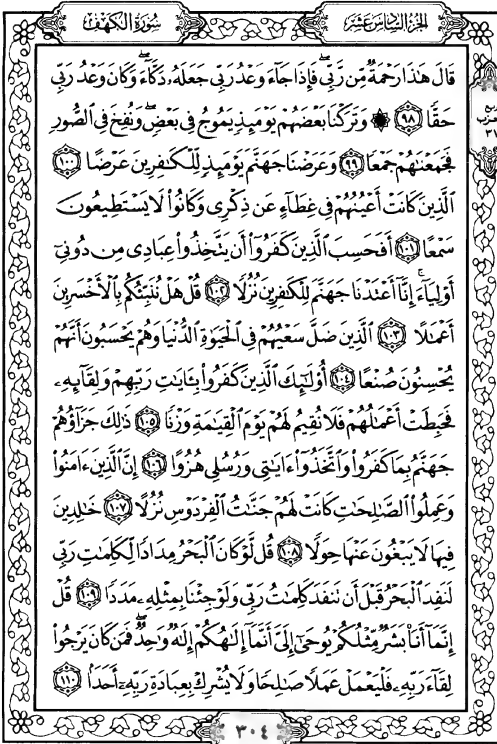 سُورَةُ الكَهْفِ
الجُزْءُ السَّادِسَ عَشَرَ
قَالَ هَٰذَا رَحْمَةٌ مِّن رَّبِّي فَإِذَا جَآءَ وَعْدُ رَبِّي جَعَلَهُۥ دَكَّآءَ ۖ وَكَانَ وَعْدُ رَبِّي
حَقًّا ٩٨ ۞ وَتَرَكْنَا بَعْضَهُمْ يَوْمَئِذٍ يَمُوجُ فِي بَعْضٍ ۖ وَنُفِخَ فِي ٱلصُّورِ
ربع حزب ٣١
فَجَمَعْنَٰهُمْ جَمْعًا ٩٩ وَعَرَضْنَا جَهَنَّمَ يَوْمَئِذٍ لِّلْكَٰفِرِينَ عَرْضًا ١٠٠
ٱلَّذِينَ كَانَتْ أَعْيُنُهُمْ فِي غِطَآءٍ عَن ذِكْرِي وَكَانُوا۟ لَا يَسْتَطِيعُونَ
سَمْعًا ١٠١ أَفَحَسِبَ ٱلَّذِينَ كَفَرُوٓا۟ أَن يَتَّخِذُوا۟ عِبَادِي مِن دُونِيٓ
أَوْلِيَآءَ ۚ إِنَّآ أَعْتَدْنَا جَهَنَّمَ لِلْكَٰفِرِينَ نُزُلًا ١٠٢ قُلْ هَلْ نُنَبِّئُكُم بِٱلْأَخْسَرِينَ
أَعْمَٰلًا ١٠٣ ٱلَّذِينَ ضَلَّ سَعْيُهُمْ فِي ٱلْحَيَوٰةِ ٱلدُّنْيَا وَهُمْ يَحْسَبُونَ أَنَّهُمْ
يُحْسِنُونَ صُنْعًا ١٠٤ أُو۟لَٰٓئِكَ ٱلَّذِينَ كَفَرُوا۟ بِـَٔايَٰتِ رَبِّهِمْ وَلِقَآئِهِۦ
فَحَبِطَتْ أَعْمَٰلُهُمْ فَلَا نُقِيمُ لَهُمْ يَوْمَ ٱلْقِيَٰمَةِ وَزْنًا ١٠٥ ذَٰلِكَ جَزَآؤُهُمْ
جَهَنَّمُ بِمَا كَفَرُوا۟ وَٱتَّخَذُوٓا۟ ءَايَٰتِي وَرُسُلِي هُزُوًا ١٠٦ إِنَّ ٱلَّذِينَ ءَامَنُوا۟
وَعَمِلُوا۟ ٱلصَّٰلِحَٰتِ كَانَتْ لَهُمْ جَنَّٰتُ ٱلْفِرْدَوْسِ نُزُلًا ١٠٧ خَٰلِدِينَ
فِيهَا لَا يَبْغُونَ عَنْهَا حِوَلًا ١٠٨ قُل لَّوْ كَانَ ٱلْبَحْرُ مِدَادًا لِّكَلِمَٰتِ رَبِّي
لَنَفِدَ ٱلْبَحْرُ قَبْلَ أَن تَنفَدَ كَلِمَٰتُ رَبِّي وَلَوْ جِئْنَا بِمِثْلِهِۦ مَدَدًا ١٠٩ قُلْ
إِنَّمَآ أَنَا۠ بَشَرٌ مِّثْلُكُمْ يُوحَىٰٓ إِلَيَّ أَنَّمَآ إِلَٰهُكُمْ إِلَٰهٌ وَٰحِدٌ ۖ فَمَن كَانَ يَرْجُوا۟
لِقَآءَ رَبِّهِۦ فَلْيَعْمَلْ عَمَلًا صَٰلِحًا وَلَا يُشْرِكْ بِعِبَادَةِ رَبِّهِۦٓ أَحَدًۢا ١١٠
٣٠٤